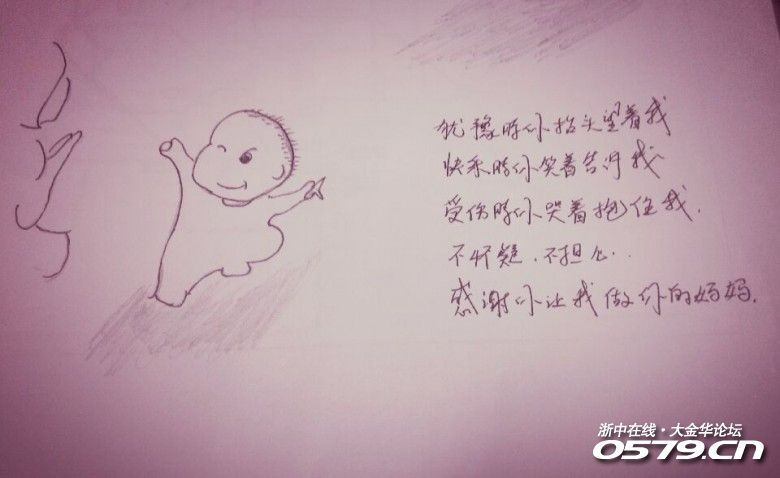 犹豫时你抬头望着我
快乐时你笑着告诉我
受伤时你哭着抱住我.
不怀疑.不担心..
感谢你让我做你的妈妈.
浙中在线·大金华论坛
0579.cn